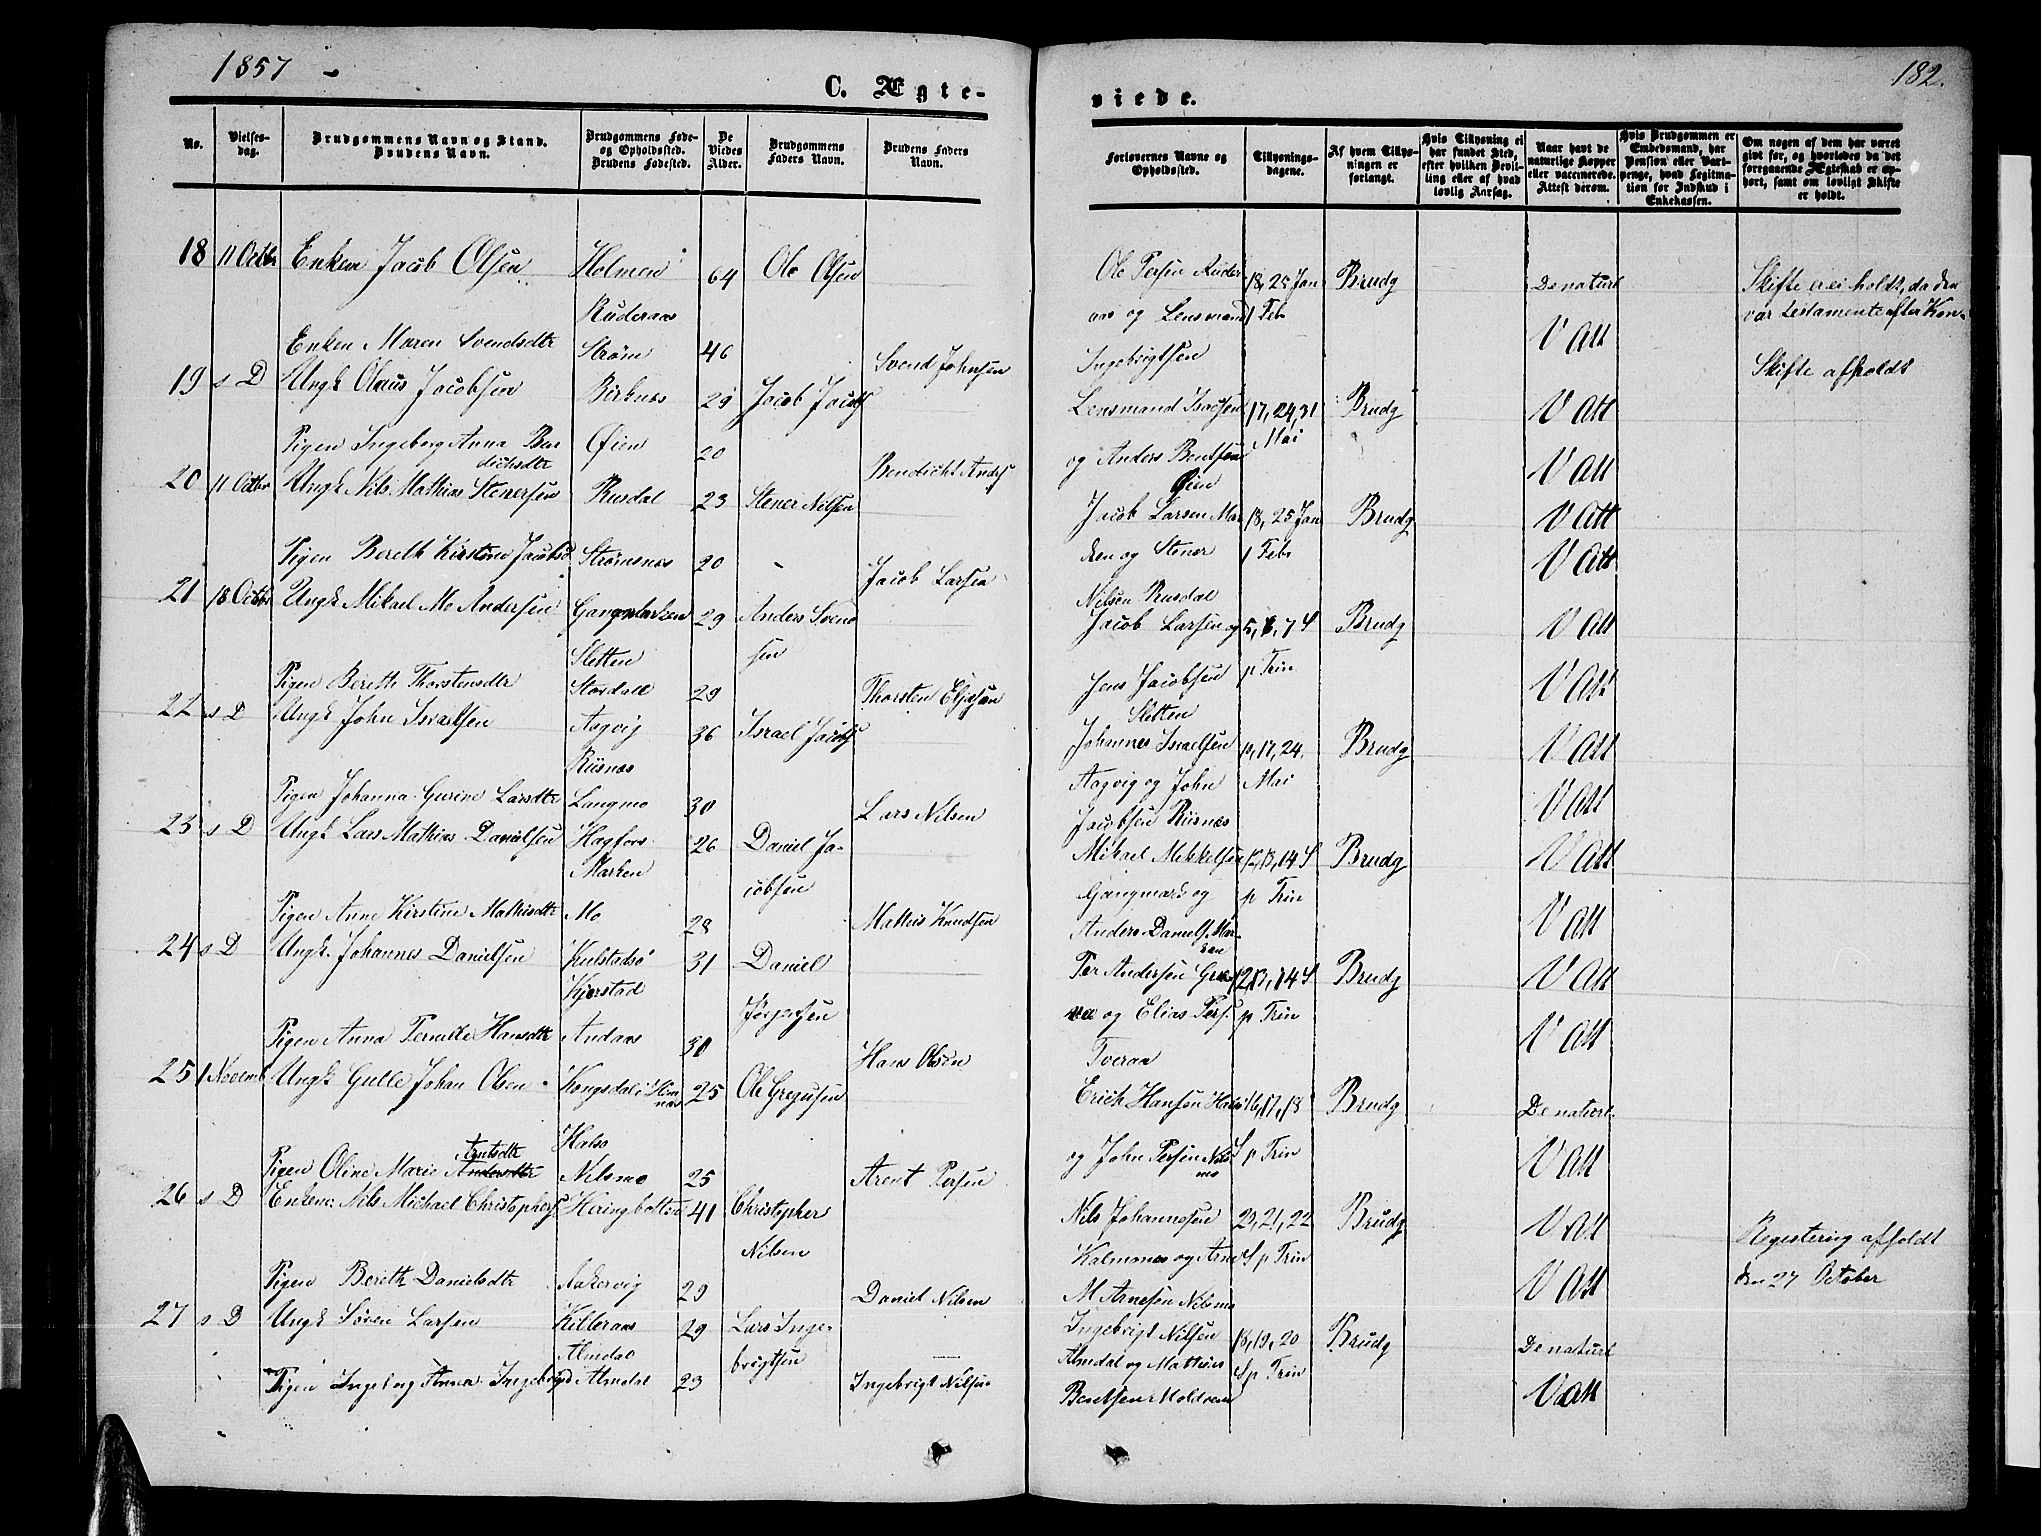 1857
182.
C. Ægte-
viede.
No.
Vielses-
dag.
Brudgommens Navn og Stand.
Brudens Navn.
Brudgommens Føde-
og Opholdssted.
Brudens Fødested.
De
Viedes
Alder.
Brudgommens
Faders Navn.
Brudens Faders
Navn.
Forlovernes Navne og
Opholdssted.
Tillysnings-
dagene.
Af hvem Tillys-
ningen er
forlangt.
Hvis Tillysning ei
har fundet Sted,
efter hvilken Bevil-
ling eller af hvad
lovlig Aarsag.
Naar havt de
naturlige Kopper
eller vaccinerede.
Attest derom.
Hvis Brudgommen er
Embedsmand, har
Pension eller Vart-
penge, hvad Legitma-
tion for Indskud i
Enkekassen.
Om nogen af dem har været
gift før, og hvorledes da det
foregaaende Ægteskab er op-
hørt, samt om lovligt Skifte
er holdt.
18 11 Octbr Enkem Jacob Olsen Holmen 64 Ole Olsen Ole Persen Ruder 18, 25 Jan Brudg De naturl Skifte er ei holdt, da den
Ruderaas aas og Lensmand 1 Feb var testamente efter Kon-
Enken Maren Svendsdtr Strøm 46 Svend Johnsen Ingebrigtsen V Att Skifte afholdt
19 s D Ungk Olaus Jacobsen Birknes 29 Jacob Jacobs Lensmand Isacsen 17, 24, 31 Brudg V Att
Mai
Pigen Ingeborg Anna Ben Øien 20 Bendicht Anders og Anders Bentsen V Att
dichsdtr Øien
20 11 Octbr Ungk Nils Mathias Stenersen Rusdal 23 Stener Nilsen Jacob Larsen Mar 18, 25 Jan Brudg V Att
Pigen Bereth Kirstine Jacobsd Strømsnes 20 Jacob Larsen ken og Stener 1 Feb V Att
Nilsen Rusdal
21 18 Octbr Ungk Mikael Mo Andersen Gangmarken 29 Anders Svend Jacob Larsen og 5, 6, 7 S Brudg V Att
Sletten sen p Trin
Pigen Bereth Thorstensdtr Stordal 29 Thorsten Jens Jacobsen V Att
Sletten
22 s D Ungk John Israelsen Aagvig 36 Israel Jacobs Johannes Israelsen 10, 17, 24 Brudg V Att
Riisnes Aagvig og John Mai
Pigen Johanna Gurine Larsdtr Langmo 30 Lars Nilsen Jacobsen Riisnes V Att
23 s D Ungk Lars Mathias Danielsen Hagfors 26 Daniel Ja- Mikael Mikkelsen 12, 13, 14 S Brudg V Att
Marken cobsen Gangmark og p Trin
Pigen Anne Kirstine Mathisdtr Mo 28 Mathis Knudsen Anders Daniels Mar- V Att
ken
24 s D Ungk. Johannes Danielsen Kulstadsø 31 Daniel Per Andersen 12, 13, 14 S Brudg V Att
Kjerstad og Elias Pers p Trin
Pigen Anna Pernille Hansdtr Andaas 30 Hans Olsen Tveraa V Att
25 1 Novemb Ungk Gulle Johan Olsen Kongsdal i 25 Ole Gregusen Erich Hansen Hals 16, 17, 18 Brudg De naturl.
Halsø
Pigen Oline Marie Arntsdtr Nilsmo 25 Arent Persen og John Persen Nils S p Trin V Att
mo
26 s D Enkem: Nils Michael Christophers 41 Christopher Nils Johannesen 20, 21, 22 Brudg V Att Registering afholdt
Nilsen Kalmnes og Arne S p Trin den 27 October
Pigen Bereth Danielsdtr Aakervig 29 Daniel Nilsen M Arnesen Nilsmo V Att
27 s D Ungk Søren Larsen Killeraas 29 Lars Inge- Ingebrigt Nilsen 18, 19, 20 Brudg De naturl
Almdal brigtsen Almdal og Mathias S p Trin
Pigen Ingeborg Anna Ingebrigd Almdal 23 Ingebrigt Nilsen Bentsen Moldrem V Att